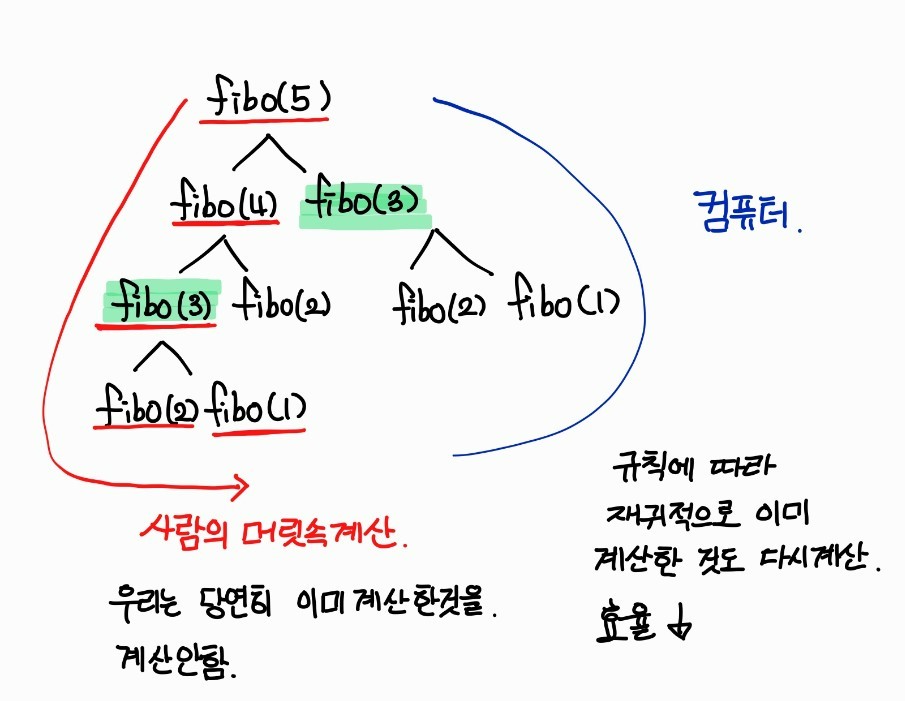 fibo(5)
fibo(4) fibo(3)
컴퓨터.
fibo(3) fibo(2) fibo(2) fibo(1)
fibo(2) fibo(1)
사람의 머릿속계산.
우리는 당연히 이미 계산한것을.
계산안함.
규칙에 따라
재귀적으로 이미
계산한 것도 다시계산.
효율 ↓